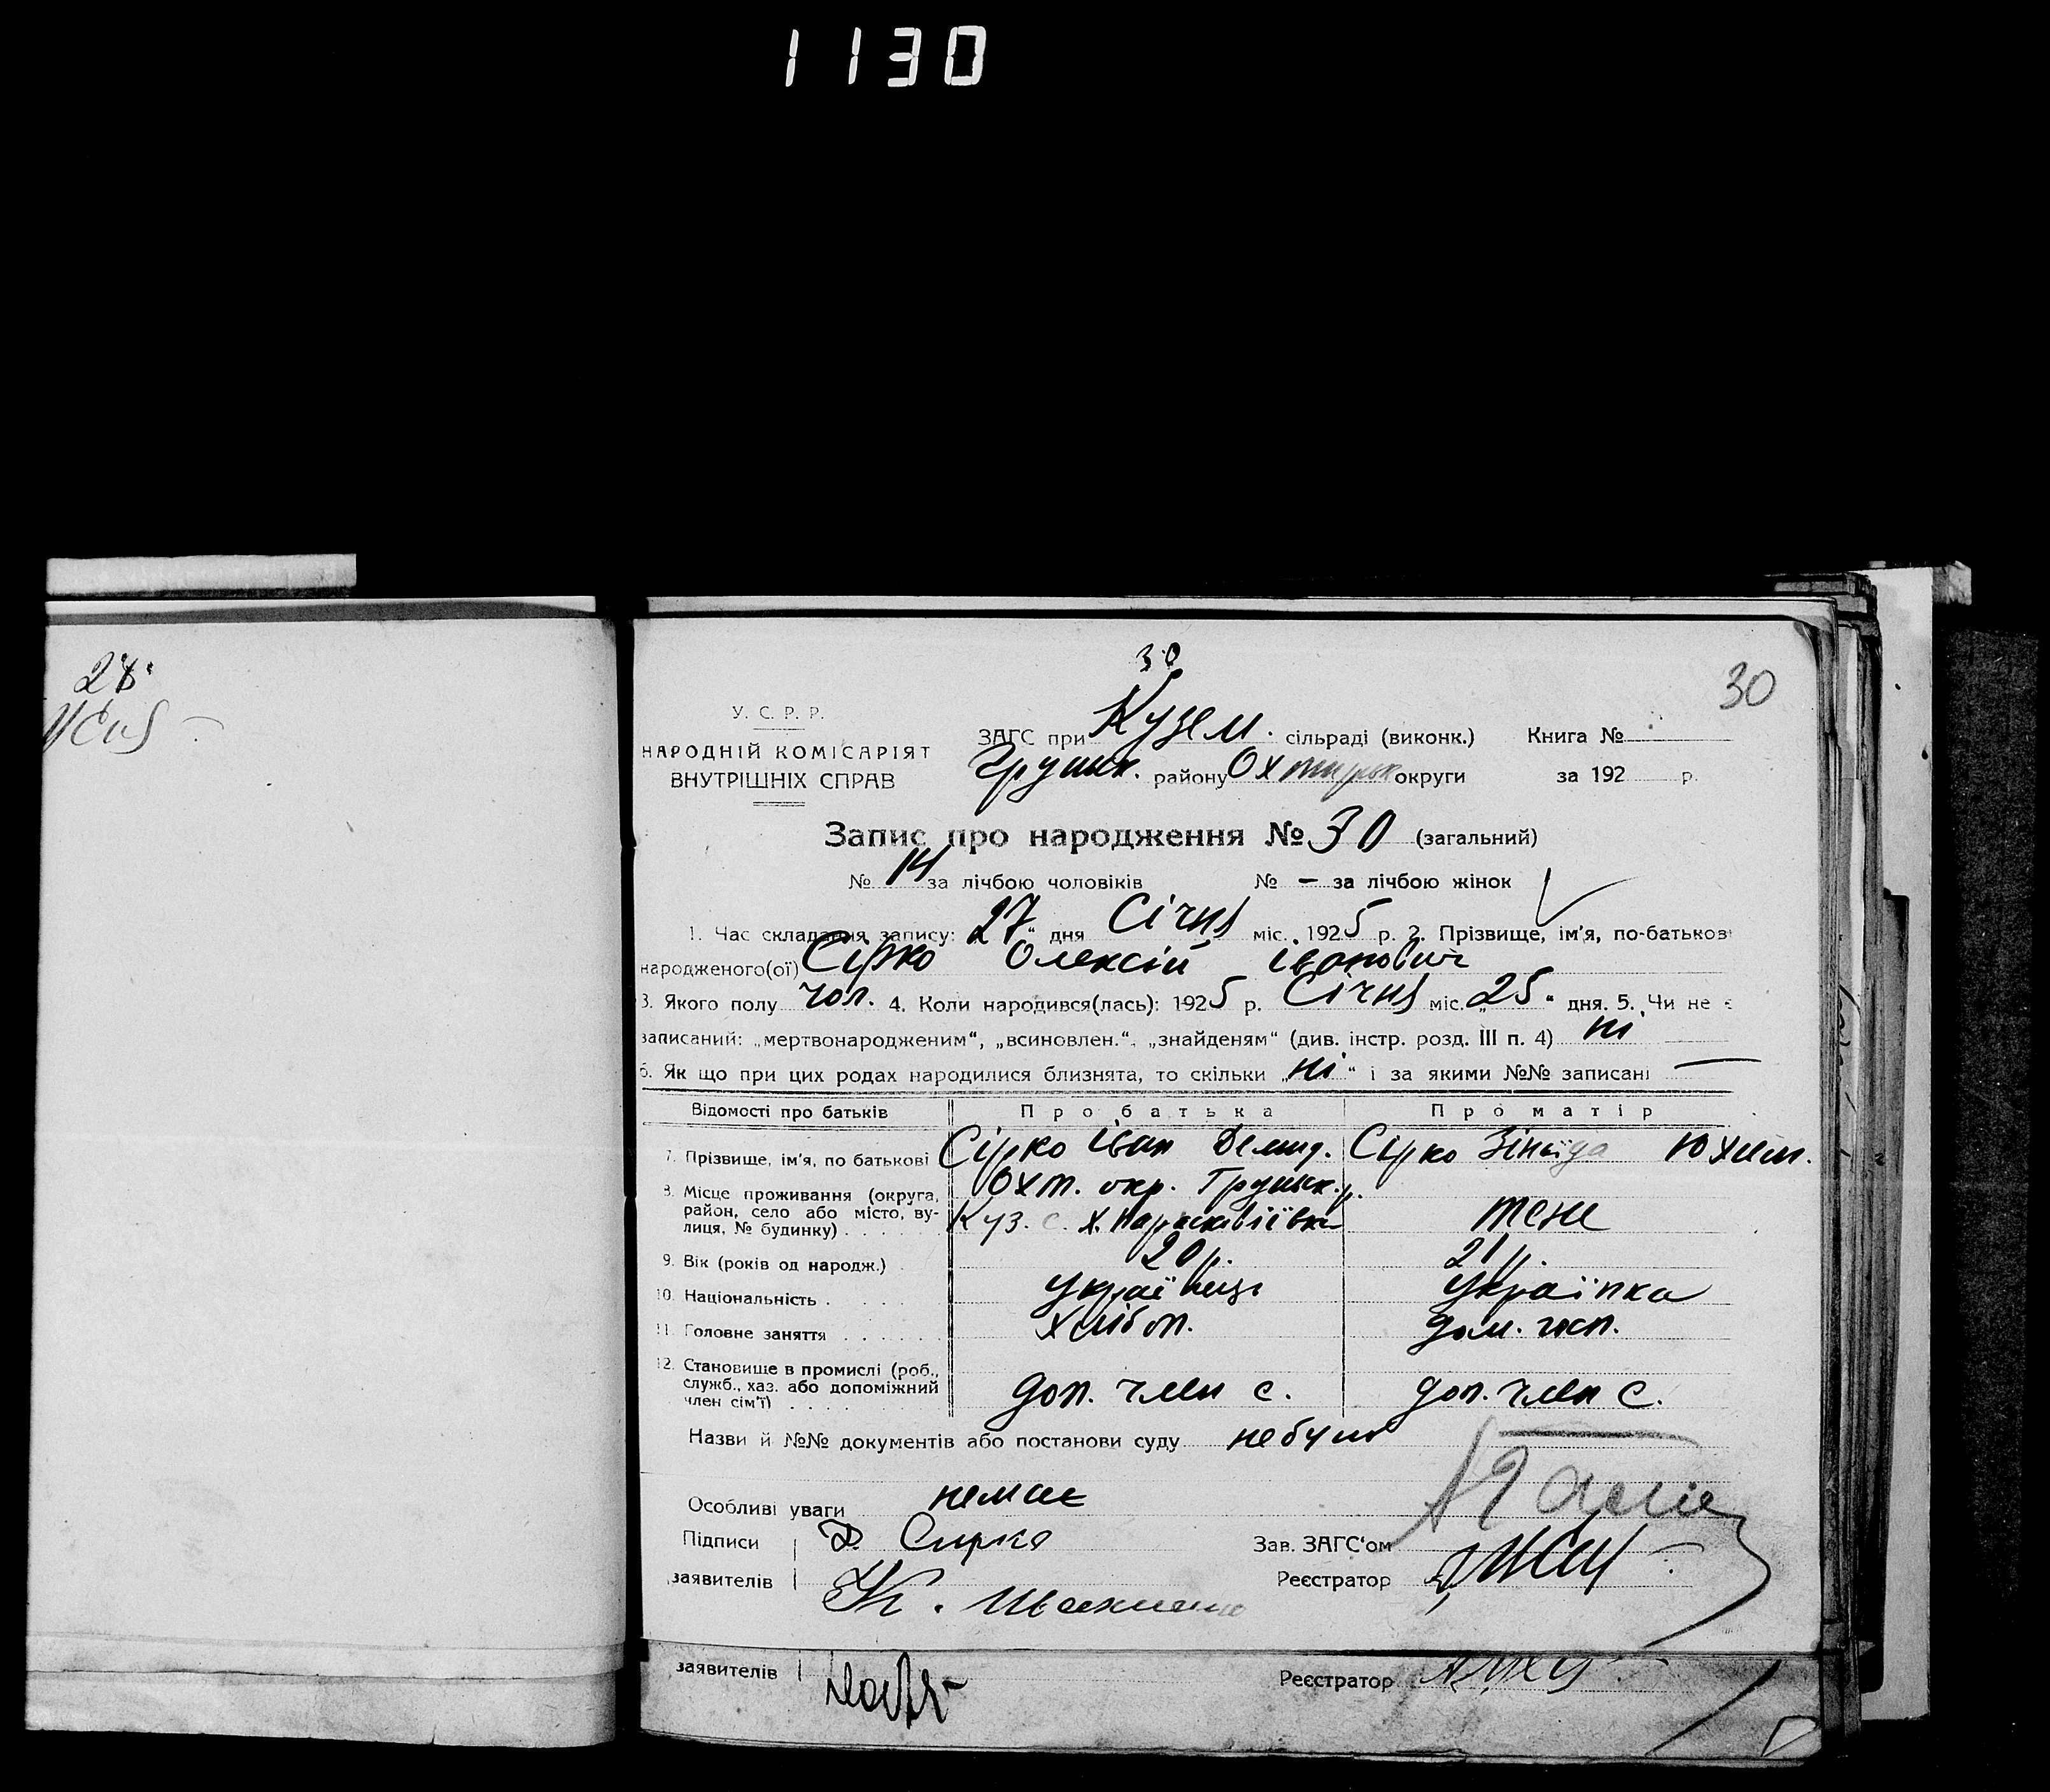 1130
28.
30
30
У. С. Р. Р.
НАРОДНІЙ КОМІСАРІЯТ
ВНУТРІШНІХ СПРАВ
ЗАГС при Кузем. сільраді (виконк.) Книга №
Грунк. району Охтирськ округи за 192 р.
Запис про народження № 30 (загальний)
№ 14 за лічбою чоловіків № – за лічбою жінок
1. Час складання запису: 27 " дня Січня міс. 1925 р. 2. Прізвище, ім'я, по-батькові
народженого(ої) Сірко Олексій Іванович
3. Якого полу чол. 4. Коли народився(лась): 1925 р. Січня міс. „25" дня. 5. Чи не є
записаний: „мертвонародженим", „всиновлен.", „знайденям" (див. інстр. розд. III п. 4) ні
6. Як що при цих родах народилися близнята, то скільки „ні" і за якими №№ записані —
Відомості про батьків Про батька Про матір
7. Прізвище, ім'я, по батькові Сірко Іван Демид. Сірко Зінаїда Юхим.
8. Місце проживання (округа, район, село або місто, вулиця, № будинку) Охт. окр. Грунськ. р.
Куз. с. х. Парасківіївка теж
9. Вік (років од народж.) 20 р. 21 р.
10. Національність українець українка
11. Головне заняття хлібоп. дом. госп.
12. Становище в промислі (роб., служб., хаз. або допоміжний член сім'ї) доп. член с. доп. член с.
Назви й №№ документів або постанови суду небуло
Особливі уваги немає
Підписи Д. Сирко Зав. ЗАГС'ом
заявителів К. Реєстратор
заявителів Реєстратор